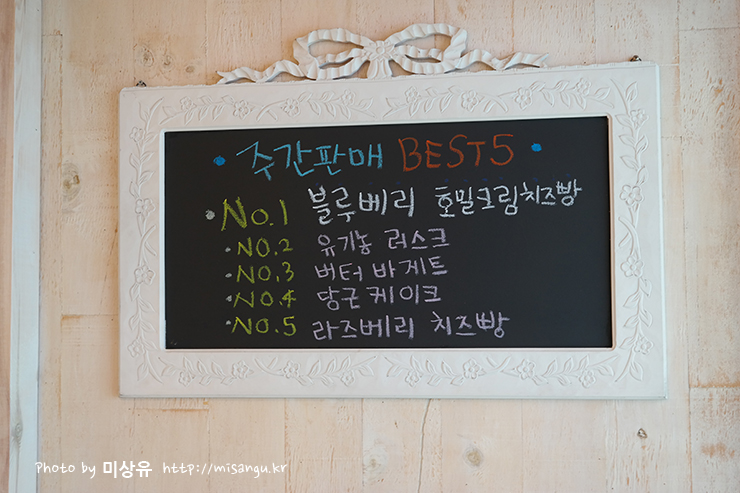 주간판매 BEST5
No.1 블루베리 호밀크림치즈빵
NO.2 유기농 러스크
NO.3 버터 바게트
NO.4 당근케이크
NO.5 라즈베리 치즈빵
Photo by 미상유 http://misangu.kr